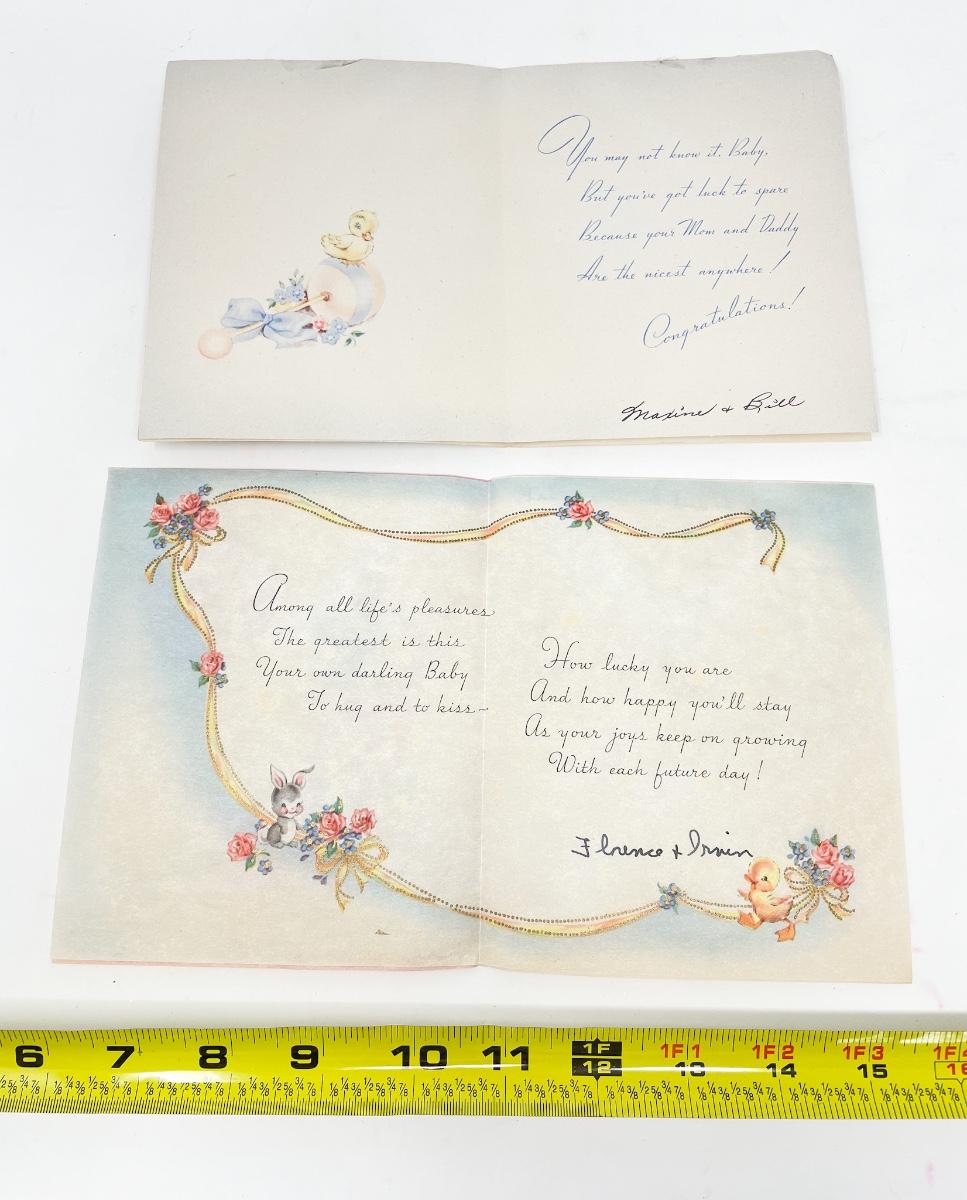 You may not know it, Baby,
But you've got luck to spare
Because your Mom and Daddy
Are the nicest anywhere!
Congratulations!
Maxine & Bill
Among all life's pleasures
The greatest is this
Your own darling Baby
To hug and to kiss~
How lucky you are
And how happy you'll stay
As your joys keep on growing
With each future day!
Florence & Irvin
6 7 8 9 10 11 1F 1F1 1F2 1F3 1F4
12 13 14 15 16